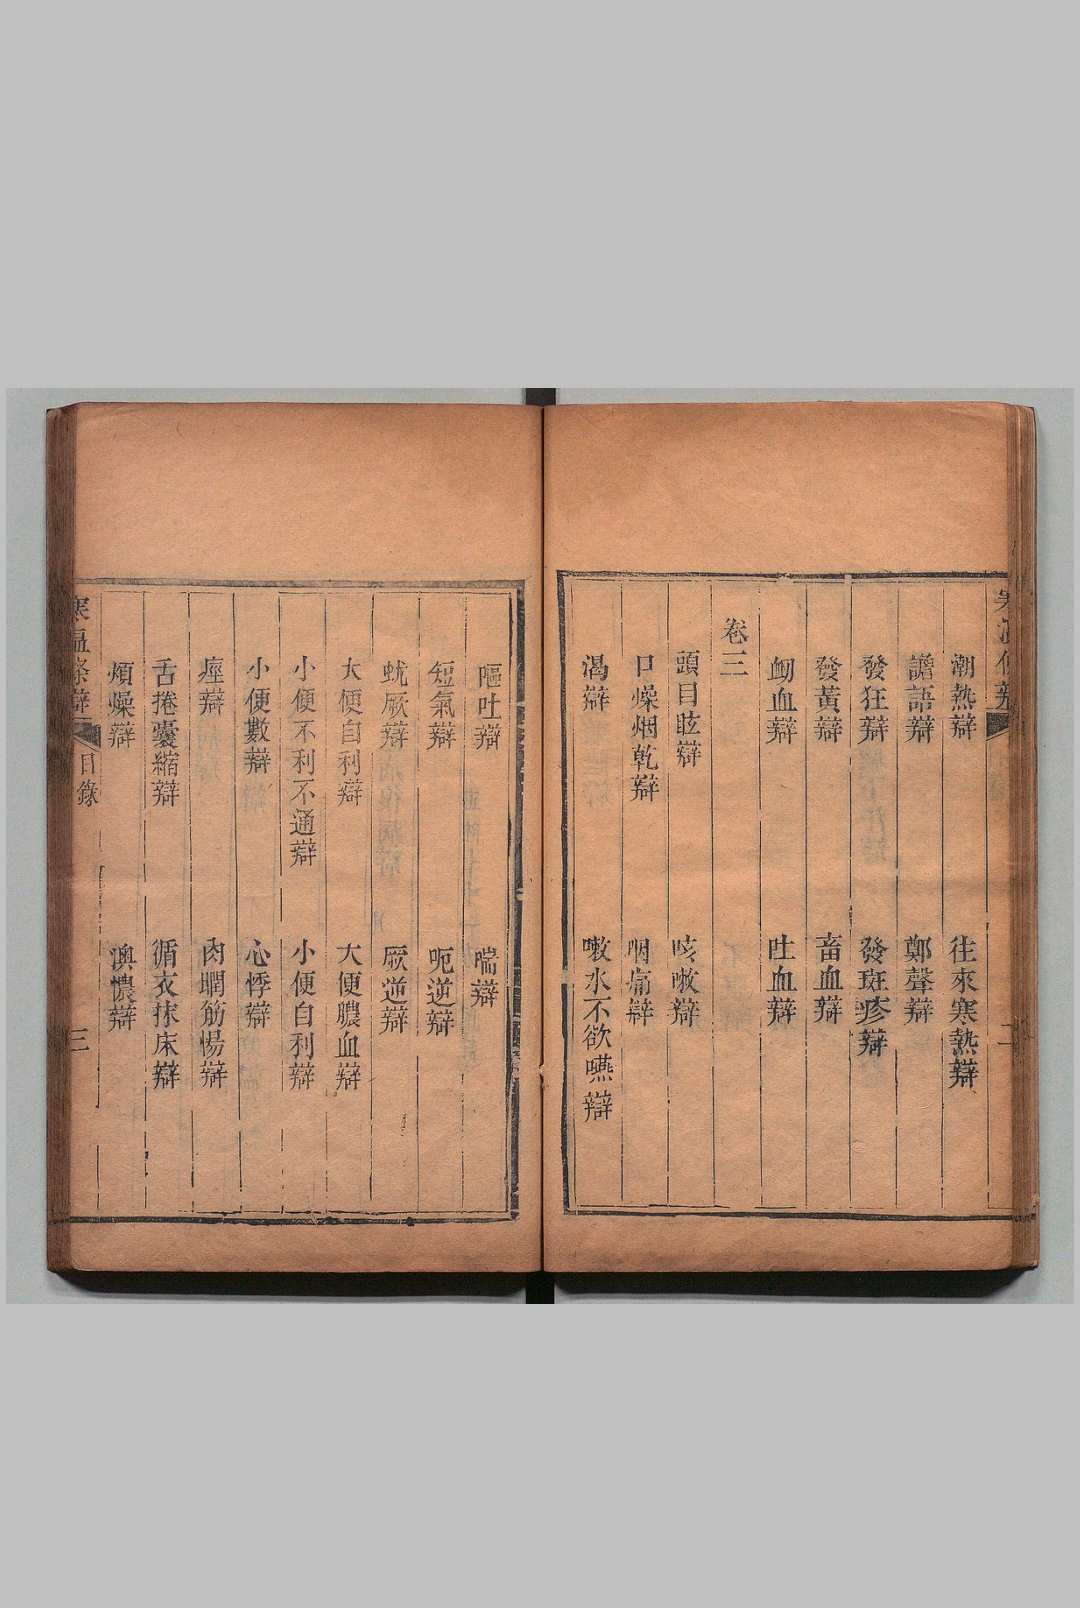 潮熱辯　往來寒熱辯
譫語辯　鄭聲辯
發狂辯　發斑疹辯
發黃辯　畜血辯
衂血辯　吐血辯
卷三
頭目眩辯　咳嗽辯
口燥咽乾辯　咽痛辯
渴辯　嗽水不欲嚥辯
嘔吐辯　喘辯
短氣辯　呃逆辯
蚘厥辯　厥逆辯
大便自利辯　大便膿血辯
小便不利不通辯　小便自利辯
小便數辯　心悸辯
痙辯　肉瞤筋惕辯
舌捲囊縮辯　循衣抹床辯
煩燥辯　懊憹辯
寒溫條辯　目錄　三